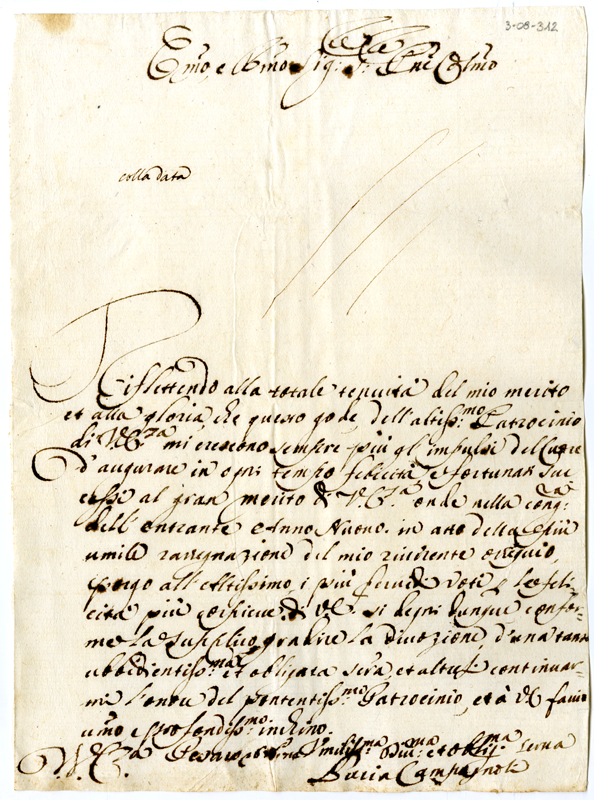 3-08-312
Emo, e Rmo Sig: Sr: Pne Colmo
colla data
Riflettendo alla totale tenuità del mio merito
et alla gloria, che questo gode dell'altiss:mo Patrocinio
di V.Eza mi crescono sempre più gl'impulsi del Cuore
d'augurare in ogni tempo felicità, e fortunati suc
cessi al gran merito di V.Eza onde nella congra
dell'entrante Anno Nuovo in atto della più
umile rassegnazione del mio riverente ossequio,
porgo all'Altissimo i più fervidi voti le feli-
cità più di VE. si degni dunque confor-
me la supplico, gradire la divozione d'una tanto
ubbidientiss:ma et obligata serva, et altresì continuar-
mi l'onore del potentiss:mo Patrocinio, et à VE
umo e profondiss:mo inchino.
Di V.Eza Umiliss:ma Div:ma et obblig:ma serva
Lucia Campagnoli